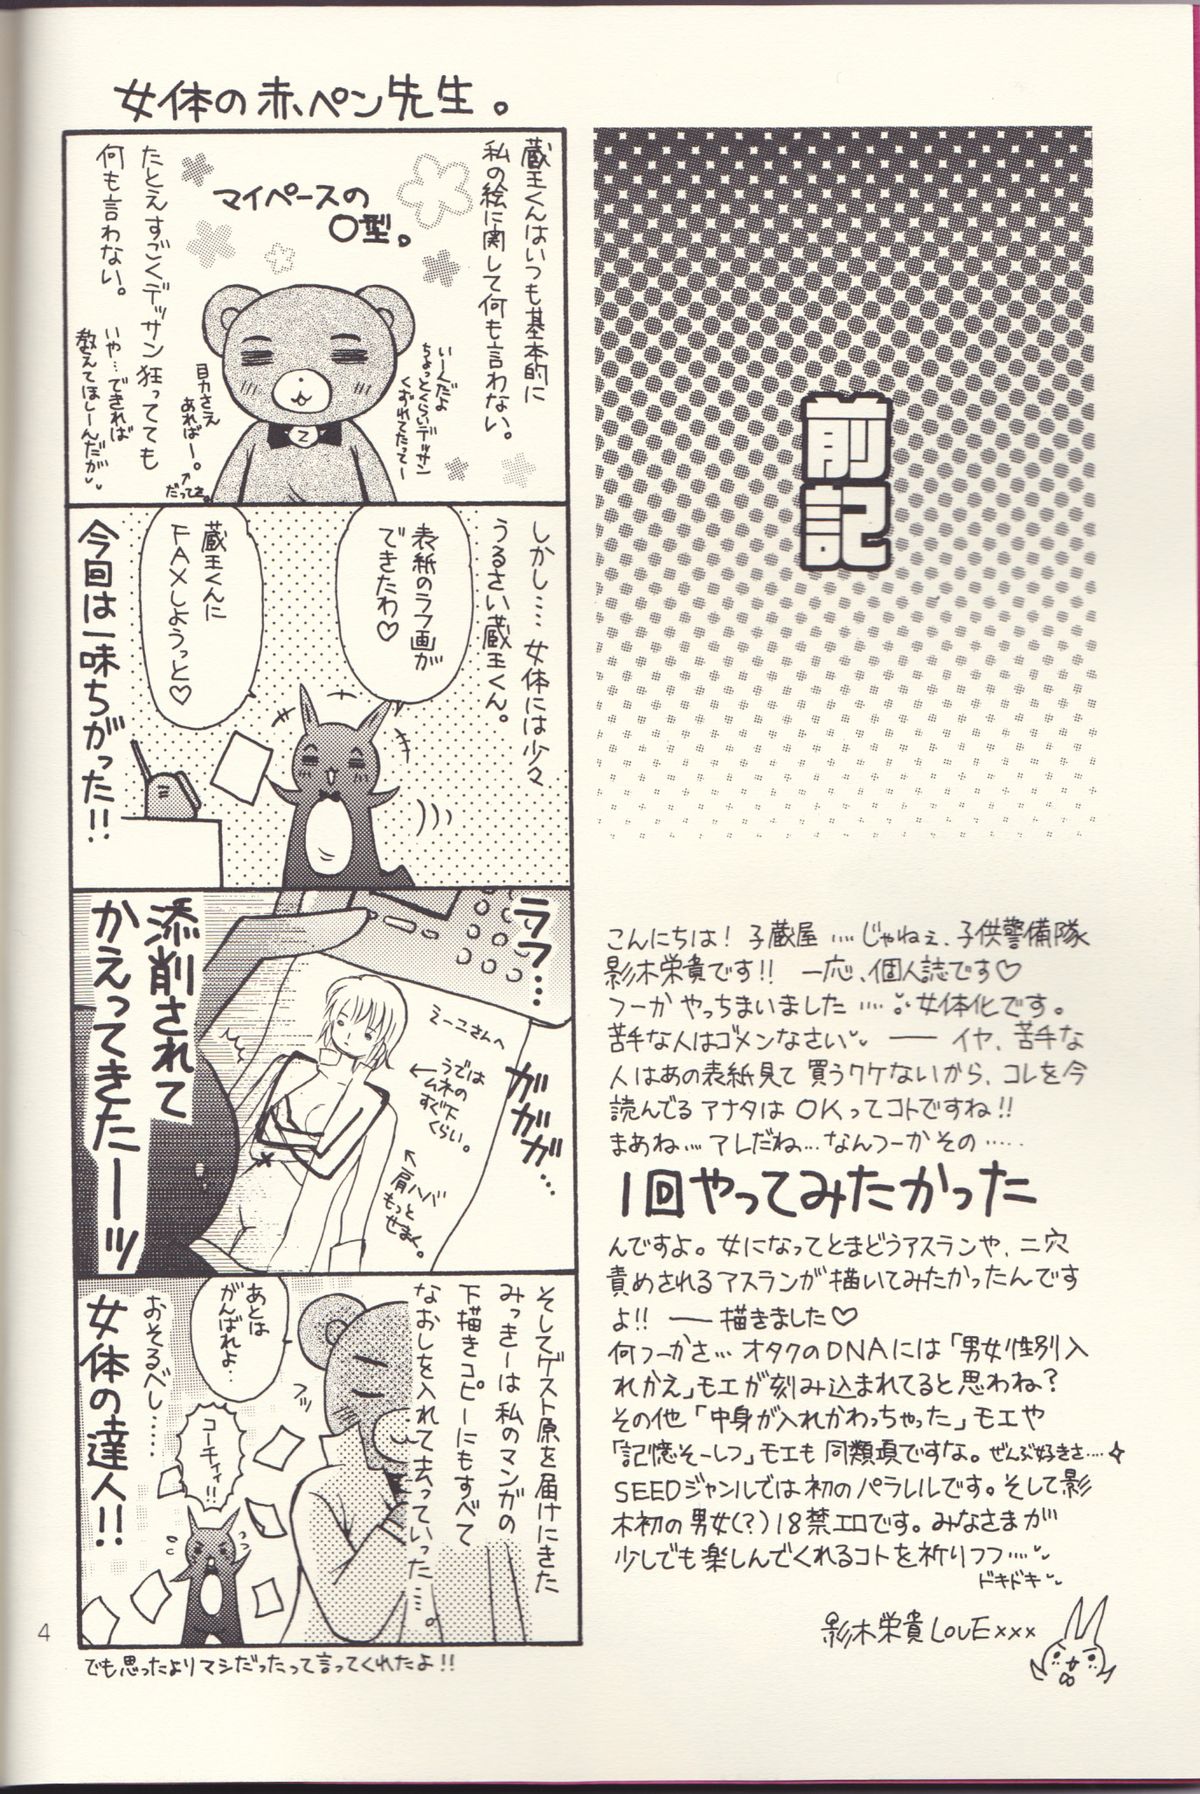 女体の赤ペン先生。
蔵王くんはいつも基本的に
私の絵に関して何も言わない。
マイペースの
O型。
たとえすごくデッサン狂ってても
何も言わない。
いや…できれば
教えてほしーんだが
いーんだよ
ちょっとくらいデッサン
くずれてたってー
目力さえ
あればー。
←だってさ。
しかし…女体には少々
うるさい蔵王くん。
表紙のラフ画が
できたわ♡
蔵王くんに
FAXしようっと♡
今回は一味ちがった!!
ラフ…
ガガガガ…
ミーユさんへ
うでは
ムネの
すぐ下
くらい。
肩ハバ
もっと
せまく。
添削されて
かえってきたーーッ
そしてゲスト原を届けにきた
みっきーは私のマンガの
下描きコピーにもすべて
なおしを入れて去っていった…。
あとは
がんばれよ
コーチィ!!
おそるべし……
女体の達人!!
でも思ったよりマシだったって言ってくれたよ!!
4
前記
こんにちは!子蔵屋…じゃねぇ、子供警備隊
影木栄貴です!! 一応、個人誌です♡
つーかやっちまいました…女体化です。
苦手な人はゴメンなさい ── イヤ、苦手な
人はあの表紙見て買うワケないから、コレを今
読んでるアナタはOKってコトですね!!
まあね…アレだね…なんつーかその……
1回やってみたかった
んですよ。女になってとまどうアスランや、二穴
責めされるアスランが描いてみたかったんです
よ!! ── 描きました♡
何つーかさ…オタクのDNAには「男女性別入
れかえ」モエが刻み込まれてると思わね?
その他「中身が入れかわっちゃった」モエや
「記憶そーしつ」モエも同類項ですな。ぜんぶ好きさ…
SEEDジャンルでは初のパラレルです。そして影
木初の男女(?)18禁エロです。みなさまが
少しでも楽しんでくれるコトを祈りつつ…
ドキドキ
影木栄貴LOVE×××